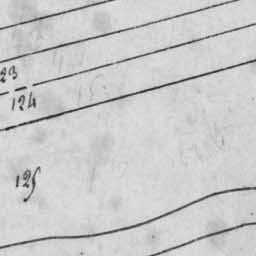 23
124
125